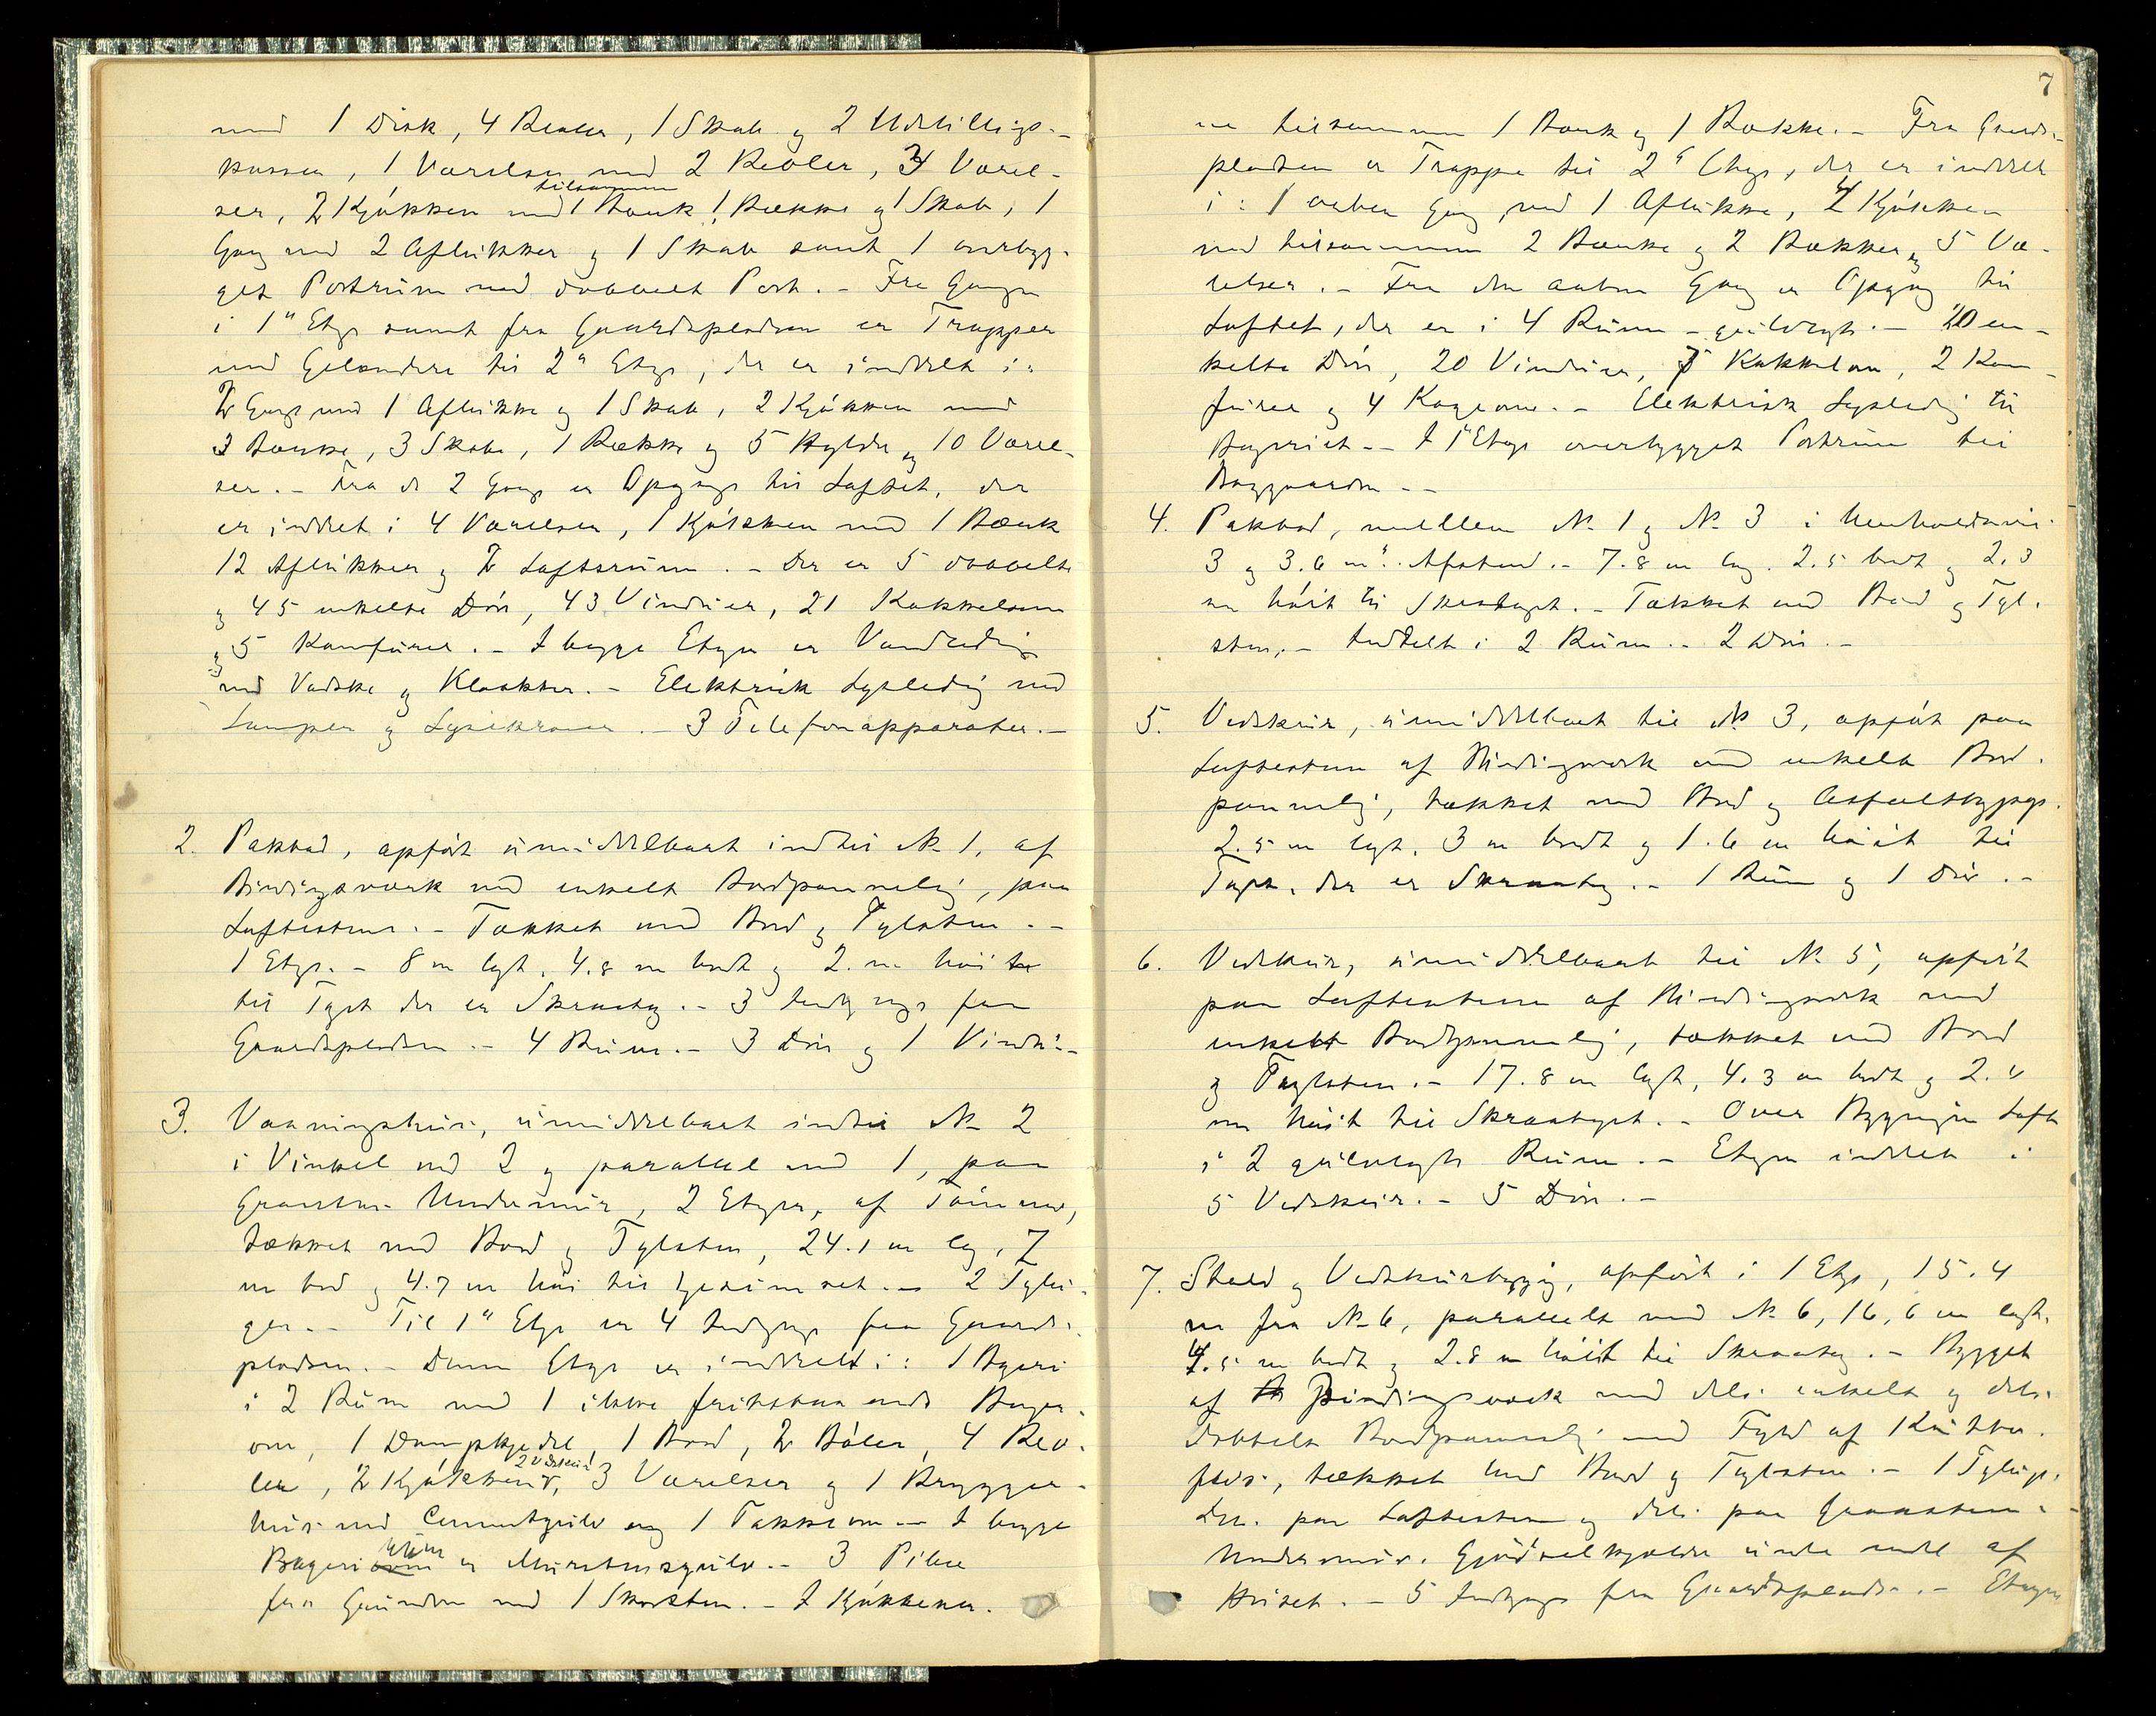 med 1 Disk, 4 Reoler, 1 Skab og 2 Udstillings-
kasser, 1 Værelse med 2 Reoler, 4 Værel-
ser, 2 Kjøkken med tilsammen 1 Bænk 1 Række og 1 Skab, 1
Gang med 2 Aflukker og 1 Skab samt 1 overbyg-
get Portrum med dobbelt Port. - Fra Gangen
i 1" Etage samt fra Gaardspladsen er Trapper
med Gelændere til 2" Etage, der er inddelt i:
2 Gange med 1 Aflukke og 1 Skab, 2 Kjøkken med
3 Bænke, 3 Skabe, 1 Række og 5 Hylder og 10 Værel-
ser. - Fra de 2 Gange er Opgange til Loftet, der
er inddelt i 4 Værelser, 1 Kjøkken med 1 Bænk
12 Aflukker og 2 Loftsrum. - Der er 5 dobbelte
og 45 enkelte Døre, 43 Vinduer, 21 Kakkelovne
og 5 Komfurer. - I begge Etager er Vandledning
med Vadske og Kloakker. - Elektrisk Lysledning med
Lamper og Lysekroner. - 3 Telefonapparater. -
2. Pakbod, opført umiddelbart indtil No 1, af
Bindingsværk med enkelt Bordpanneling, paa
Loftestene. - Tækket med Bord og Tagsten. -
1 Etage. - 8 m langt, 4.8 m bredt og 2. m høit
til Taget der er Skraatag. - 3 Indgange fra
Gaardspladsen. - 4 Rum. - 3 Døre og 1 Vindu. -
3. Vaaningshus, umiddelbart indtil No 2
i Vinkel med 2 og parallel med 1, paa
Graastens Undermur, 2 Etager, af Tømmer,
tækket med Bord og Taglsten, 24.1 m lang, 7
m bred og 4.7 m høi til Gesimset. - 2 Tagluger. -
Til 1" Etage er 4 Indgange fra Gaards-
pladsen. - Denne Etage er inddelt i: 1 Bageri
i 2 Rum med 1 ikke fritstaaende Bager-
ovn, 1 Dampkjedel, 1 Bord, 2 Baler, 4 Reo-
ler, 2 Kjøkkener, 2 Vedskur 3 Værelser og 1 Brygger-
hus med Cementgulv og 1 Takkeovn - I begge
Bageri rum er Murstensgulv. - 3 Piber
fra Grunden med 1 Skorsten. - I Kjøkkener.
7
ne tilsammen 1 Bænk og 1 Række. - Fra Gaards-
pladsen er Trappe til 2" Etage, der er inddelt
i: 1 aaben Gang med 1 Aflukke, 4 Kjøkken
med tilsammen 2 Bænke og 2 Rækker og 5 Væ-
relser. - Fra den aabne Gang er Opgang til
Loftet, der er i 4 Rum - gulvlagt. - 20 en-
kelte Døre, 20 Vinduer, 5 Kakkelovne, 2 Kom-
furer og 4 Kogeovne. - Elektrisk Lysledning til
Bageriet. - I 1" Etage overbygget Portrum til
Baggaarden. -
4. Pakbod, mellem No 1 og No 3 i henholdsvis
3 og 3.6 m's Afstand. - 7.8 m lang. 2.5 bredt og 2.3
m høit til Skraataget. - Tækket med Bord og Tagl-
sten. - Inddelt i 2 Rum. - 2 Døre. -
5. Vedskur, umiddelbart til No 3, opført paa
Loftestene af Bindingsværk med enkelt Bord-
panneling, tækket med Bord og Asfaltpap.
2.5 m langt, 3 m bredt og 1.6 m høit til
Taget, der er Skraatag. - 1 Rum og 1 Dør. -
6. Vedskur, umiddelbart til No 5, opført
paa Loftestene af Bindingsværk med
enkelt Bordpanneling, tækket med Bord
og Taglsten. - 17.8 m langt, 4.3 m bredt og 2.
m høit til Skraataget. - Over Bygningen Loft
i 2 gulvlagte Rum. - Etagen inddelt i
5 Vedskur. - 5 Døre. -
7. Stald og Vedskurbygning, opført i 1 Etage, 15.4
m fra No 6, parallelt med No 6, 16,6 m langt,
4.5 m bredt og 2.8 m høit til Skraatag. - Bygget
af Bindingsværk med dels enkelt og dels
dobbelt Bordpanneling med Fyld af Kutter-
flis, tækket med Bord og Taglsten. - 1 Tagluge.
Dels paa Loftesten og dels paa Graastens
Undermur. Gjødselkjælder under endel af
Huset. - 5 Indgange fra Gaardspladsen. - Etagen